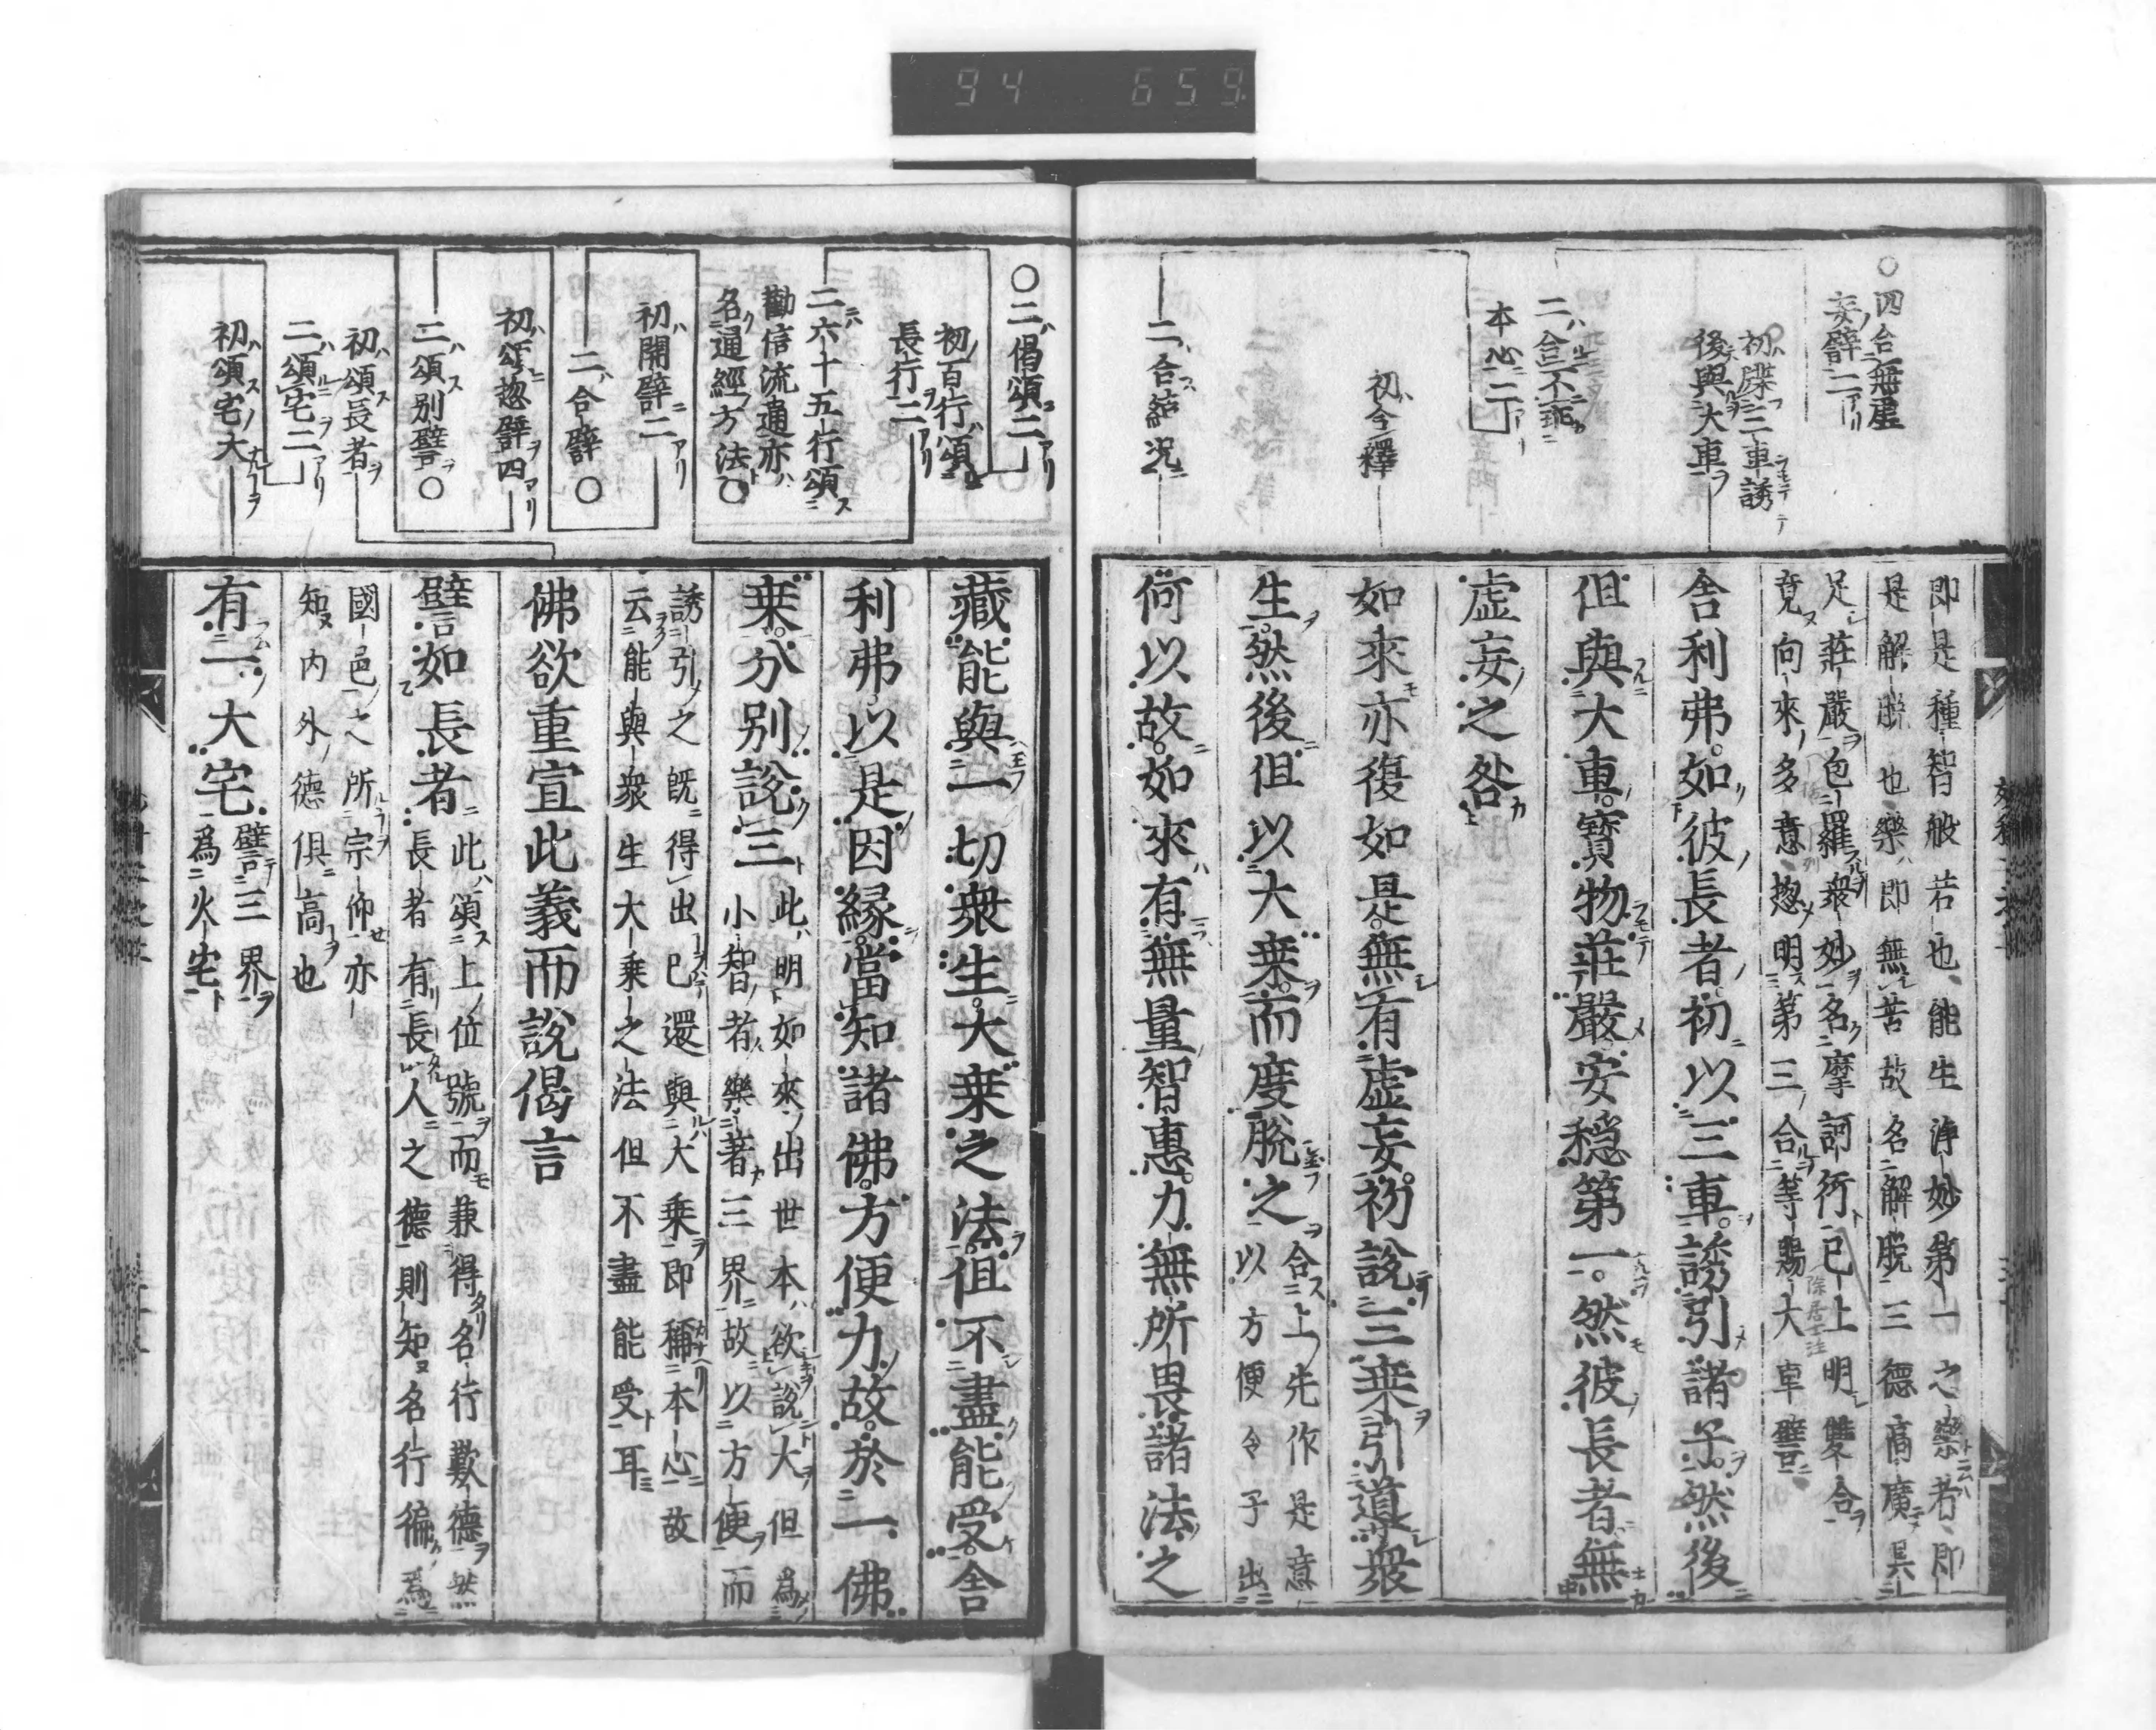 94 659
○四合無虚
妄譬二
初牒三車誘
後與大車
二合不乖
本心二
初合釋
二合結況
即是種智般若也能生淨妙第一之樂者即
是解脱也樂即無苦故名解脱三德高廣具
足莊嚴色羅衆妙名摩訶衍已上明雙合
竟向來多意惣明第三合等賜大車譬
舎利弗如彼長者初以三車誘引諸子然後
但與大車寳物莊嚴安穏第一然彼長者無
虚妄之咎
如來亦復如是無有虚妄初説三乗引導衆
生然後但以大乗而度脱之
合上先作是意
以方便令子出
何以故如來有無量智惠力無所畏諸法之
○二偈頌二
初百行頌
長行二
二六十五行頌
勸信流通亦
名通經方法○
初開譬二
二合譬○
初頌惣譬四
二頌別譬○
初頌長者
二頌宅二
初頌宅大
藏能與一切衆生大乗之法但不盡能受舎
利弗以是因縁當知諸佛方便力故於一佛
乗分別説三
此明如來出世本欲説大但爲
小智者樂著三界故以方便而
誘引之既得出已還與大乗即稱本心故
云能與衆生大乗之法但不盡能受耳
佛欲重宣此義而説偈言
譬如長者
此頌上位號而兼得名行歎德然
長者有長人之德則知名行徧爲
國邑之所宗仰亦
知内外德俱高也
有一大宅
譬三界
爲火宅